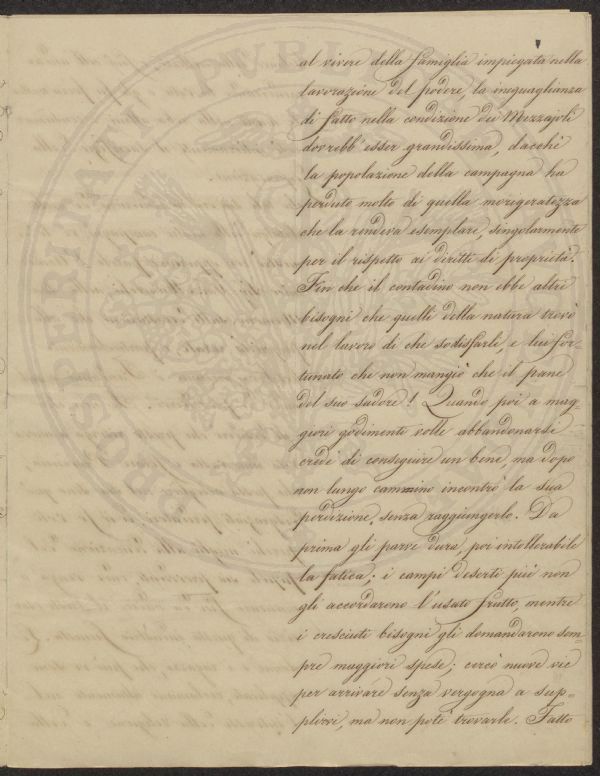 al vivere della famiglia impiegata nella
lavorazione del podere, la ineguaglianza
di fatto nella condizione dei Mezzajoli
dovrebb'esser grandissima, dacchè
la popolazione della campagna ha
perduto molto di quella morigeratezza
che la rendeva esemplare, singolarmente
per il rispetto ai diritti di proprietà.
Fin che il contadino non ebbe altri
bisogni che quelli della natura trovò
nel lavoro di che sodisfarli, e lui for-
tunato che non mangiò che il pane
del suo sudore! Quando poi a mag-
giori godimenti volle abbandonarsi
credè di conseguire un bene, ma dopo
non lungo cammino incontrò la sua
perdizione, senza raggiungerlo. Da
prima gli parve dura, poi intollerabile
la fatica; i campi deserti più non
gli accordarono l'usato frutto, mentre
i cresciuti bisogni gli domandarono sem-
pre maggiori spese; cercò nuove vie
per arrivare senza vergogna a sup-
plirvi, ma non potè trovarle. Fatto
PROSPERITATI PVBL